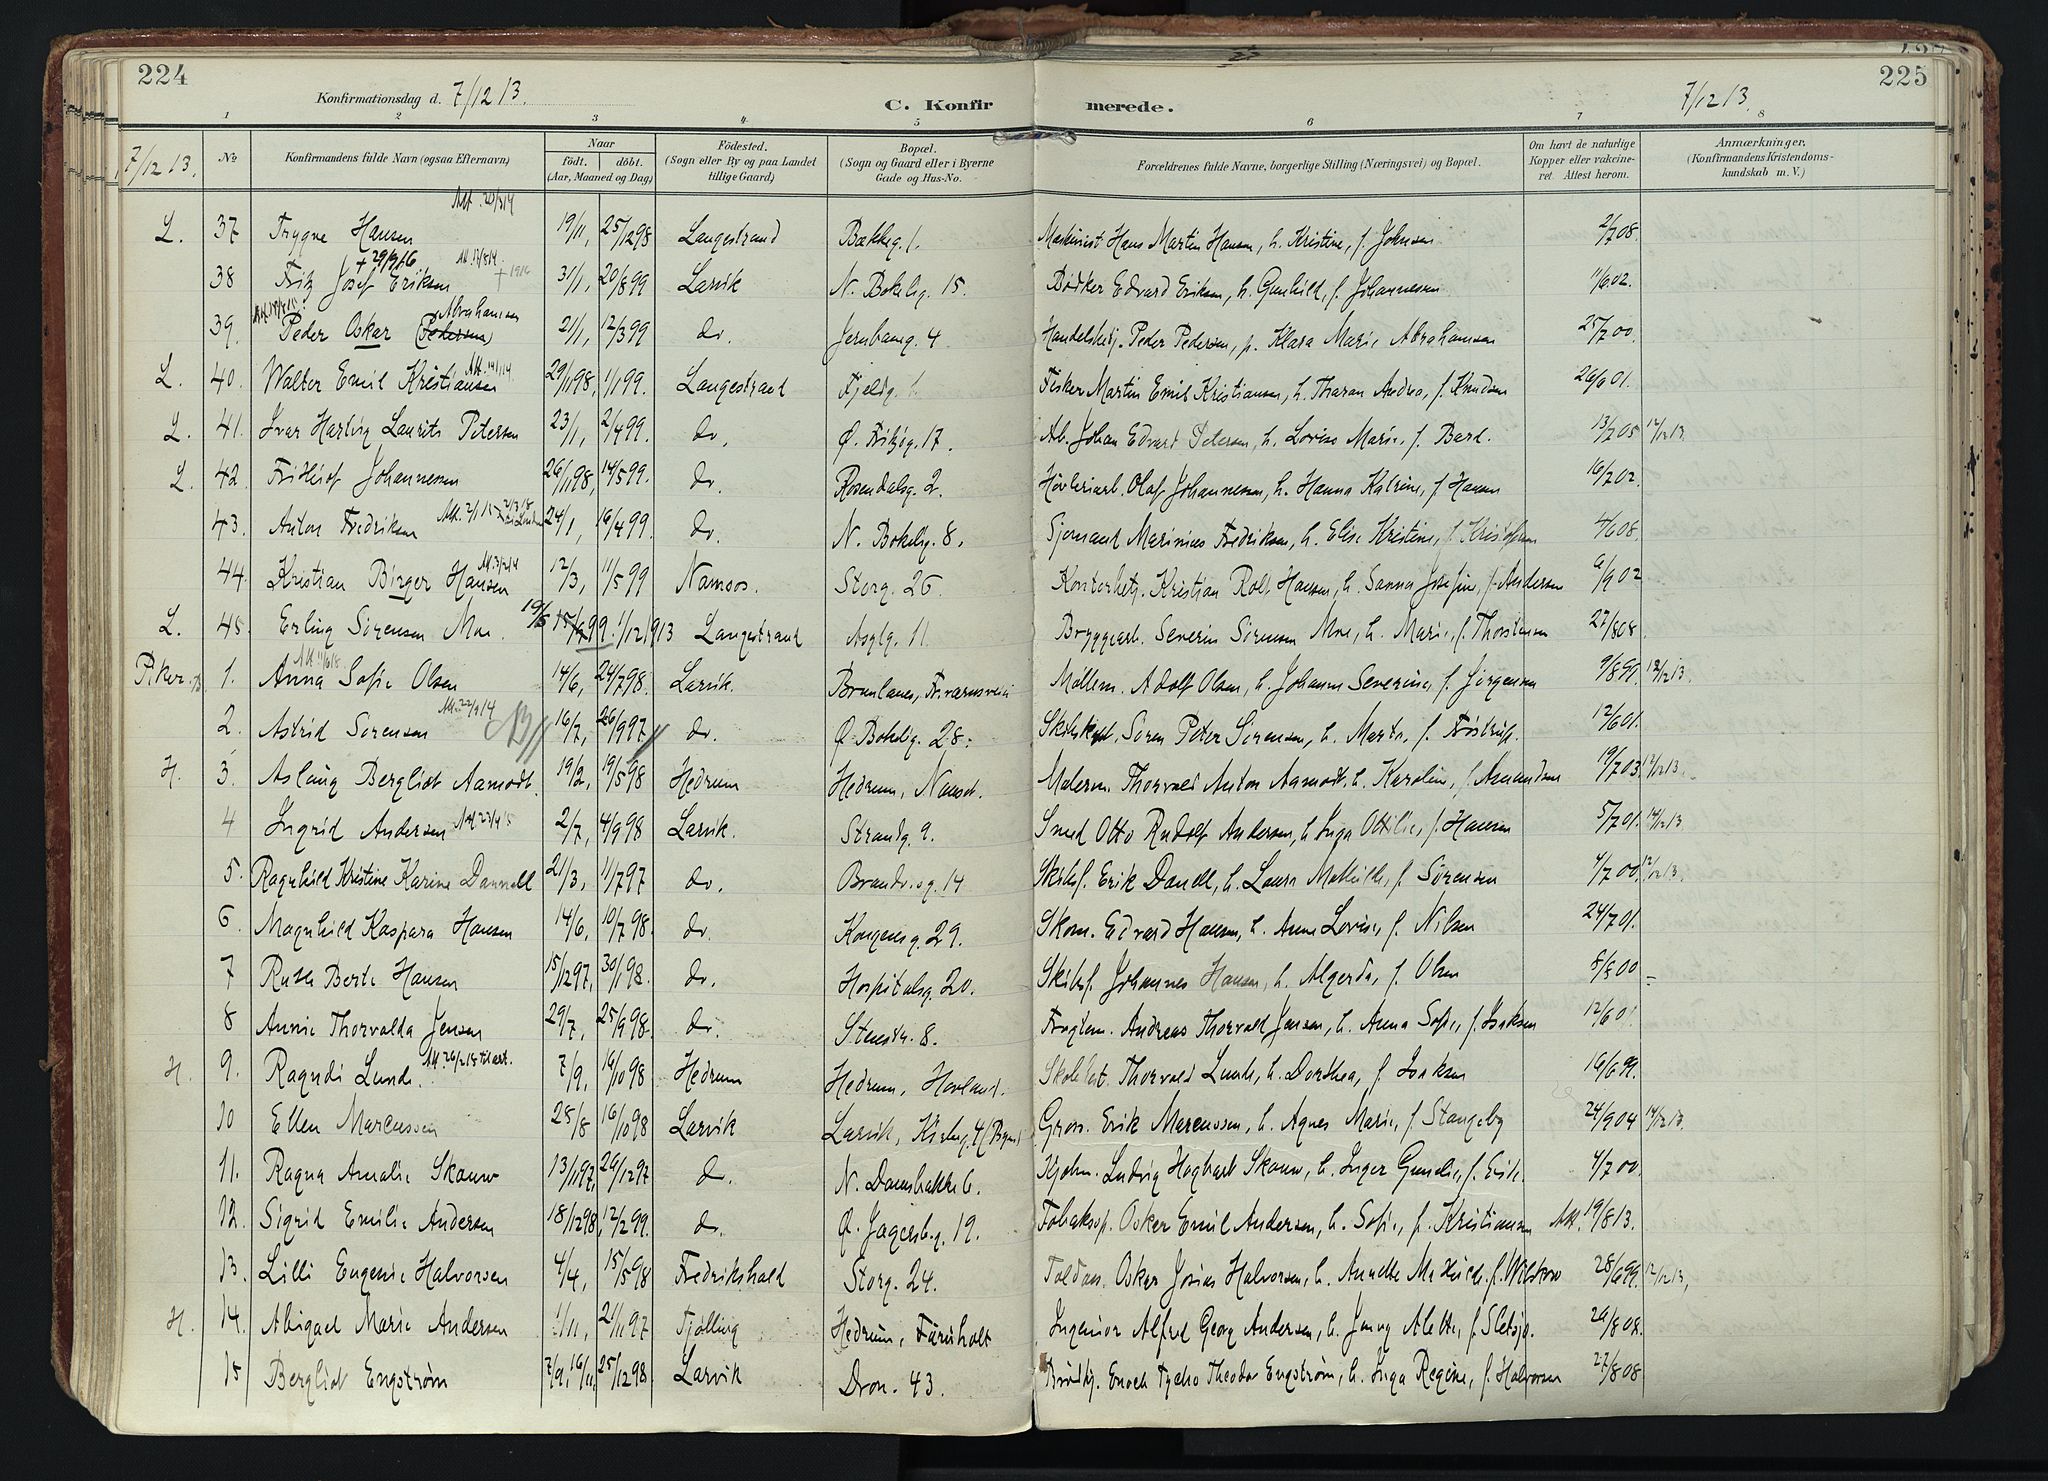 224
Konfirmationsdag d. 7/12 13.
C. Konfirmerede.
7/12 13.
225
1 2 3 4 5 6 7 8
7/12 13.
No
Konfirmandens fulde Navn (ogsaa Efternavn)
Naar
födt. döbt.
(Aar, Maaned og Dag)
Födested.
(Sogn eller By og paa Landet
tillige Gaard)
Bopæl.
(Sogn og Gaard eller i Byerne
Gade og Hus-No.
Forældrenes fulde Navne, borgerlige Stilling (Næringsvei) og Bopæl.
Om havt de naturlige
Kopper eller vakcine-
ret. Attest herom.
Anmærkninger.
(Konfirmandens Kristendoms-
kundskab m. V.)
L. 37 Trygve Hansen 19/11, 25/12 98 Langestrand Bækkeg. 1. Maskinist Hans Martin Hansen, h. Kristine, f. Johnsen 2/7 08.
+ 29/9/16
38 Fritz Josef Eriksen + 1916 31/1, 20/8 99 Larvik N. Bokelg. 15. Bødker Edvard Eriksen, h. Gunhild, f. Johannessen 11/6 02.
Abrahamsen
39. Peder Oskar (Pedersen) 21/1, 12/3 99 do. Jernbaneg. 4 Handelsbetj. Peder Pedersen, p. Klara Marie Abrahamsen 25/7 00.
L. 40. Walter Emil Kristiansen 29/11 98, 1/1 99. Langestrand Fjeldg. Fisker Martin Emil Kristiansen, h. Tharan Andrea, f. Knudsen 26/6 01.
L. 41. Ivar Hartvig Laurits Petersen 23/1, 2/4 99. do. Ø. Fritzøg. 17. Ab. Johan Edvard Petersen, h. Lovise Marie, f. Bard. 13/7 05 12/12 13.
L. 42. Frithjof Johannessen 26/11 98, 14/5 99. do. Rosendalsg. 2. Høvleriarb. Olaf Johannessen, h. Hanna Katrine, f. Hansen 16/7 02.
43. Anton Fredriksen 24/1, 16/4 99. do. N. Bokelg. 8. Sjømand Marinius Fredriksen, h. Elise Kristine, f. Kristofersen 4/6 08.
44. Kristian Birger Hansen 12/3, 11/5 99 Namsos. Storg. 26. Kontorbetj. Kristian Rolf Hansen, h. Sanna Josefine, f. Andersen 6/9 02
L. 45. Erling Sørensen Moe. 19/5 15/6 99. 1/12 1913 Langestrand 11. Bryggearb. Severin Sørensen Moe, h. Marie, f. Thorstensen 27/8 08.
Piker. 1. Anna Sofie Olsen 14/6, 24/7 98. Larvik. Brunlanes, Møllem. Adolf Olsen, h. Johanne Severine, f. Jørgensen 9/8 99. 12/12 13.
2. Astrid Sørensen 16/7, 26/9 97 do. Ø. Bokelg. 28. Søren Peter Sørensen, h. Marta, f. Frøstrup. 12/6 01.
H. 3. Aslaug Bergliot Aamodt. 19/2, 19/5 98 Hedrum Hedrum, Nanset. Malerm. Thorvald Anton Aamodt, h. Karoline, f. Amundsen 19/7 03. 12/12 13.
4 Ingrid Andersen 2/7, 4/9 98 Larvik. Strandg. 9. Smed Otto Rudolf Andersen, h. Inga Ottilie, f. Hansen 5/7 01. 14/12 13.
5. Ragnhild Kristine Karine Dannell 21/3, 11/7 97 do. 14 Skibsf. Erik Danell, h. Laura Mathilde, f. Sørensen 4/7 00. 12/12 13.
6. Magnhild Kaspara Hansen 14/6, 10/7 98. do. Kongensg. 29. Skom. Edvard Hansen, h. Anna Lovise, f. Nilsen 24/7 01.
7 Ruth Berte Hansen 15/12 97, 30/1 98. do. Hospitalsg. 20. Skibsf. Johannes Hansen, h. Algerda, f. Olsen 8/8 00 –
8 Annie Thorvalda Jensen 29/7, 25/9 98. do. Stenstr. 8. Andreas Thorvald Jensen, h. Anna Sofie, f. Isaksen 12/6 01.
H. 9. Ragndi Lunde 7/9, 16/10 98 Hedrum Hedrum, Hovland. Thorvald Lunde, h. Dorthea, f. Isaksen 16/6 99.
10 Ellen Marcussen 25/8 16/10 98 Larvik Larvik, Kirkeg. 4 Gross. Erik Marcussen, h. Agnes Marie, f. Stangeby 24/9 04 14/12 13.
11. Ragna Amalie Skouw 13/11 97, 26/12 97 do. N. Damsbakke 6. Kjøbm. Ludvig Hagbart Skouw, h. Inger Gunelie, f. Erik. 4/7 00.
12. Sigrid Emilie Andersen 18/12 98, 12/2 99. do. Ø. Jægersbg. 19. Tobakssp. Oskar Emil Andersen, h. Sofie, f. Kristiansen Att. 19/8 13.
13. Lilli Eugenie Halvorsen 4/4, 15/5 98 Fredrikshald Storg. 24. Toldas. Oskar Josias Halvorsen, h. Annette Mathilde, f. 28/6 99. 12/12 13,
H. 14. Abigael Marie Andersen 1/11, 21/11 97 Tjølling Hedrum, Farisholt Ingeniør Alfred Georg Andersen, h. Jenny Alette, f. Sletsjø. 26/8 08.
15 Bergliot Engstrøm 7/9, 16/11, 25/12 98. Larvik Dron. 43. Enoch Tycho Theodor Engstrøm, h. Inga Regine, f. Halvorsen 27/8 08